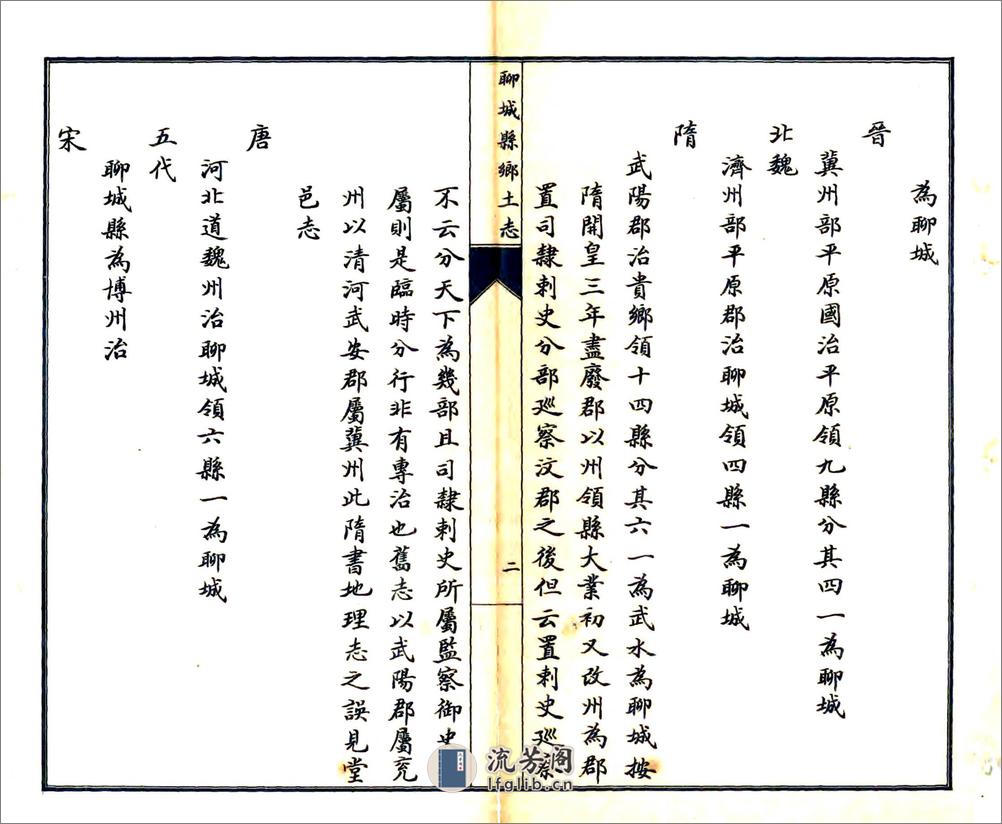 為聊城
晉
冀州部平原國治平原領九縣分其四一為聊城
北魏
濟州部平原郡治聊城領四縣一為聊城
隋
武陽郡治貴鄉領十四縣分其六一為武水為聊城按
隋開皇三年盡廢郡以州領縣大業初又改州為郡
置司隸刺史分部廵察汶郡之後但云置刺史廵察
聊城縣鄉土志
二
不云分天下為幾部且司隸刺史所屬監察御史
屬則是臨時分行非有專治也舊志以武陽郡屬兗
州以清河武安郡屬冀州此隋書地理志之誤見堂
邑志
唐
河北道魏州治聊城領六縣一為聊城
五代
聊城縣為博州治
宋
流芳阁
lfglib.cn